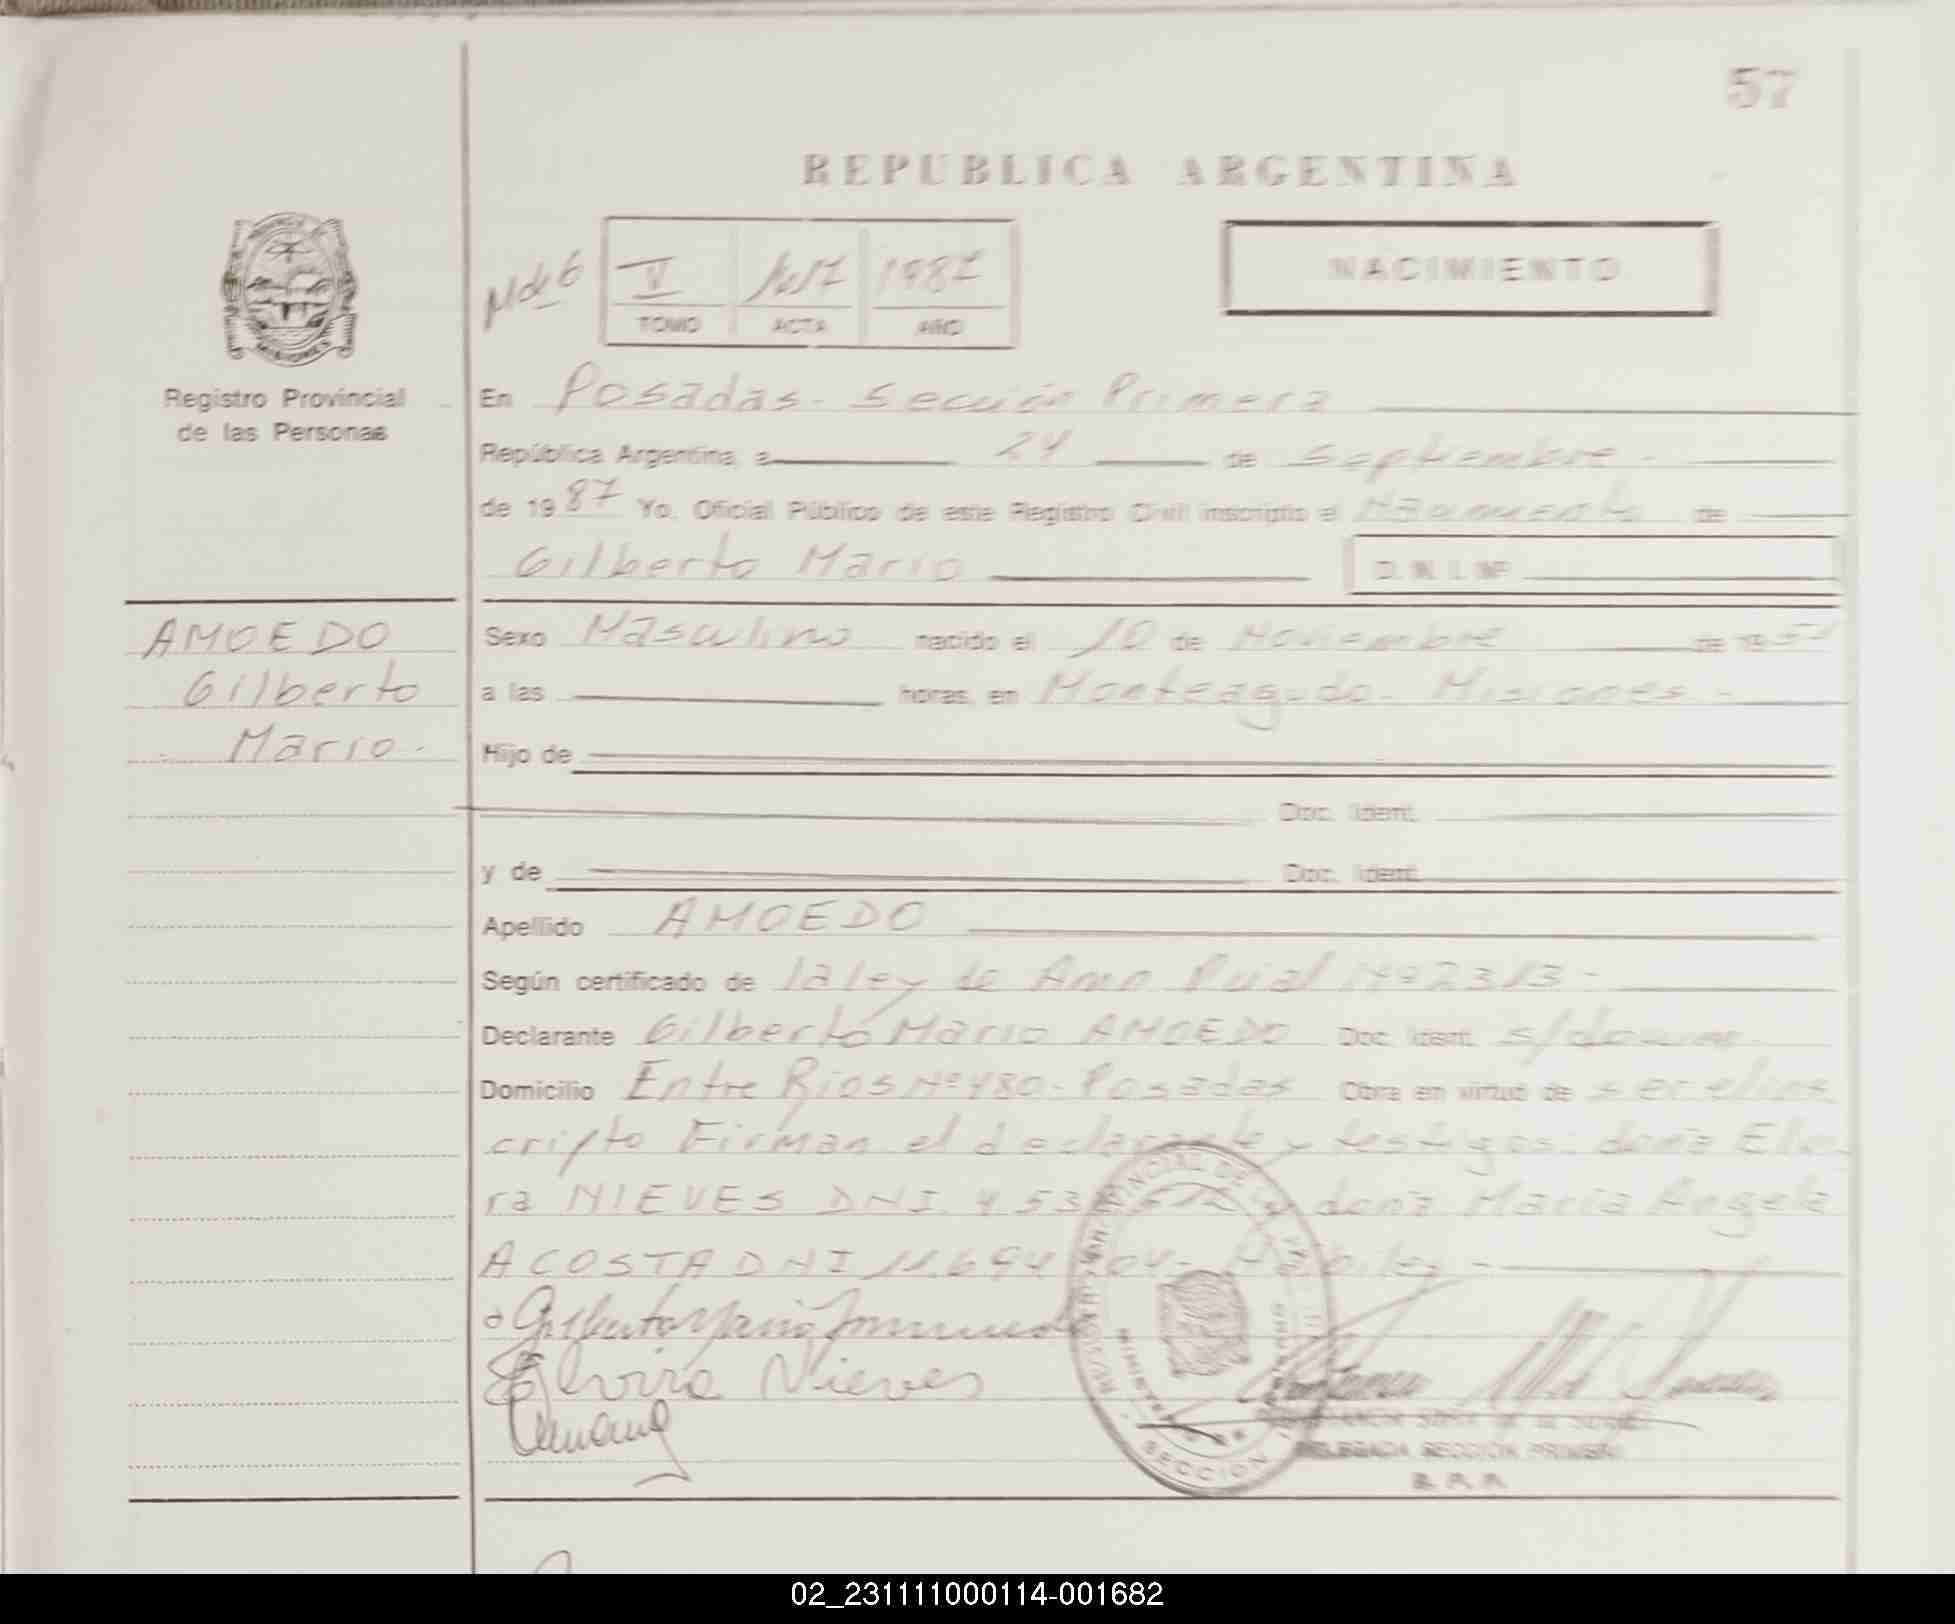 57
REPUBLICA ARGENTINA
V 1987
TOMO ACTA AÑO
NACIMIENTO
MISIONES
Registro Provincial
de las Personas
En Posadas - Sección Primera
República Argentina, a 24 de Septiembre -
de 1987 Yo, Oficial Público de este Registro Civil inscripto el Nacimiento de
Gilberto Mario D. N. I. Nº
AMOEDO
Gilberto
Mario -
Sexo Masculino nacido el 10 de Noviembre de 195
a las horas, en Monteagudo - Misiones -
Hijo de
Doc. Ident.
y de Doc. Ident.
Apellido AMOEDO
Según certificado de la ley de Nº 2313 -
Declarante Gilberto Mario AMOEDO Doc. Ident. s/
Domicilio Entre Rios Nº 480 - Posadas Obra en virtud de ser el ins
cripto Firman el declarante y testigos: doña El
ra NIEVES DNI. 4 53 y doña Maria Angela
ACOSTA DNI 11.694 04 - Hábiles -
Elvira Nieves
DELEGADA SECCION PRIMERA
R. P. P.
02_231111000114-001682